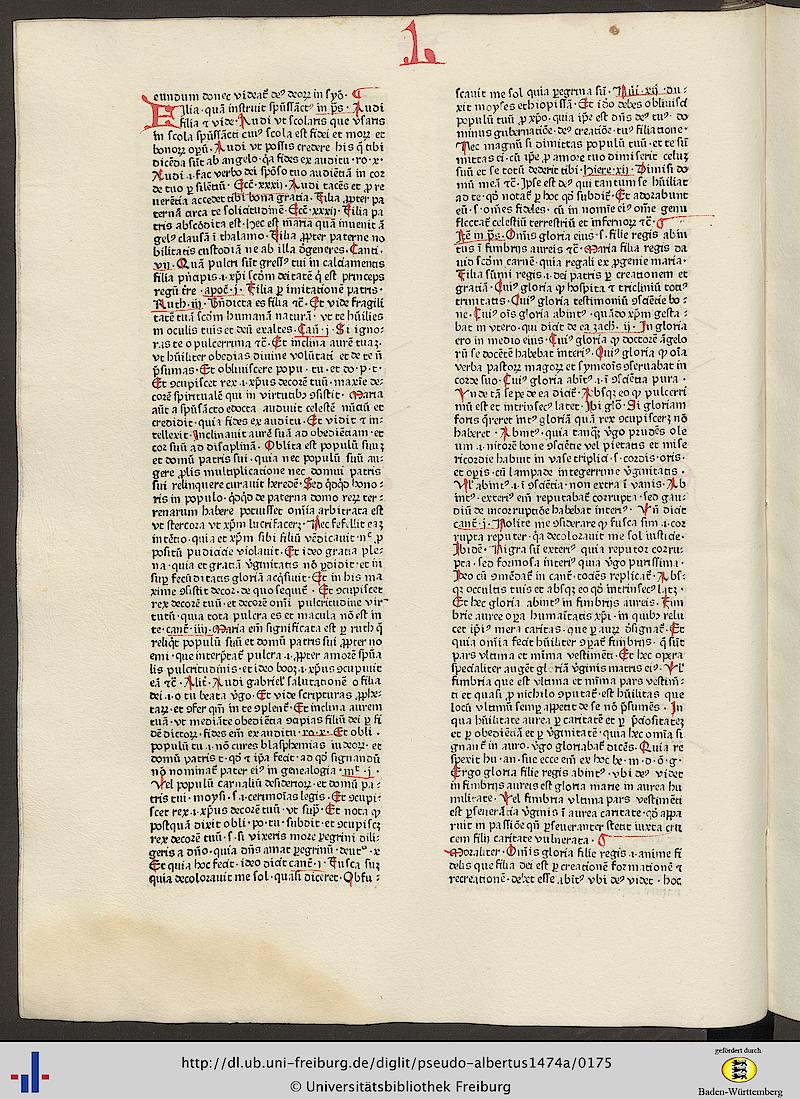 L
eundum donec videat̄ deꝰ deoꝝ in syō.
Filia. quā instruit spūssāctꝰ in p̄s. Audi
filia ⁊ vide. Audi vt scolaris que vsaris
in scola spūssācti cuiꝰ scola est fidei et moꝝ et
bonoꝝ opū. Audi vt possis credere his q̄ tibi
dicēda sūt ab angelo. q̄a fides ex auditu. ro. x.
Audi. i. fac verbo dei spōso tuo audiētiā in cor
de tuo ꝑ silētiū. Ecc̄. xxxij. Audi tacēs et ꝓ re
uerētia accedet tibi bona gratia. Filia ꝓpter pa
ternā circa te solicitudinē. Ecc̄. xxxij. Filia pa
tris abscōdita est. hec est maria quā inuenit ā
gelꝰ clausā ī thalamo. Filia ꝓpter paterne no
bilitatis custodiā ne ab illa degeneres. Canti.
vij. Quā pulcri sūt gressꝰ tui in calciamentis
filia pncipis. i. xp̄i scdm deitatē q̄ est princeps
regū tr̄e. apoc̄. j. Filia ꝑ imitationē patris.
Ruth. iij. Bn̄dicta es filia ⁊c̄. Et vide fragili
tatē tuā scdm humanā naturā. vt te hūilies
m oculis tuis et deū exaltes. Can̄. j. Si igno
ras te o pulcerrima ⁊c̄. Et inclina aurē tuaꝫ.
vt hūiliter obedias diuine volūtati et de te n̄
p̄sumas. Et obliuiscere popu. tu. et do. p. t.
Et ꝯcupiscet rex. i. xp̄us decorē tuū. maxīe de
corē spiritualē qui in virtutibꝰ ꝯsistit. Maria
aūt a spūsācto edocta audiuit celestē nūciū et
credidit. quia fides ex auditu. Et vidit ⁊ in
tellexit. Inclinauit aurē suā ad obediētiam. et
cor suū ad disciplinā. Oblita est populū suuꝫ
et domū patris sui. quia nec populū suū au
gere ꝓlis multiplicatione nec domui patris
sui relinquere curauit heredē. Sed qͥdqͥd hono
ris in populo. qͥdqͥd de paterna domo reꝝ ter
renarum habere potuisset om̄ia arbitrata est
vt stercora vt xp̄m lucrifaceꝫ. Nec fefellit eaꝫ
intētio. quia et xp̄m sibi filiū vēdicauit. nͨ ꝓ
positū pudicicie violauit. Et ideo gratia ple
na. quia et gratiā v̄ginitatis nō ꝑdidit. et in
suꝑ fecūditatis gloriā acq̄siuit. Et in his ma
xime ꝯsistit decor. de quo sequit̄. Et ꝯcupiscet
rex decorē tuū. et decorē om̄i pulcritudine vir
tutū. quia tota pulcra es et macula nō est in
te. cant̄. iiij. Maria em̄ significata est ꝑ ruth q̄
reliqͥt populū suū et domū patris sui. ꝓpter no
emi. que interp̄tat̄ pulcra. i. ꝓpter amorē spūa
lis pulcritudinis. et ideo booꝫ. i. xp̄us ꝯcupiuit
eā ⁊c̄. Alit̄. Audi gabriel salutationē o filia
dei. i. o tu beata v̄go. Et vide scripturas ꝓphe
taꝝ. et ꝯfer qm̄ in te splent̄. Et inclina aurem
tuā. vt mediāte obediētia ꝯcapias filiū dei ꝑ fi
dē dictoꝝ. fides em̄ ex auditu. ro. x. Et obli.
populū tu. i. nō cures blasphemias iudeoꝝ. et
domū patris t. qͦ ⁊ ip̄a fecit. ad qͦ signandū
nō nominat̄ pater eiꝰ in genealogia. mͭ. j.
Vel populū carnaliū desiderioꝝ. et domū pa
tris tui. moysi. s. i. cerimoīas legis. Et ꝯcupi
scet rex. i. xp̄us decorē tuū. vt supͣ. Et nota ꝙ
postquā dixit obli. po. tu. subdit. et ꝯcupisceꝫ
rex decorē tuū. s. si vixeris more peregrini dili
geris a dn̄o. quia dn̄s amat peregrinū. deutͦ. x
Et quia hoc fecit. ideo dicit cant̄. j. Fusca suꝫ
quia decolorauit me sol. quasi diceret. Obfu
scauit me sol quia peregrina sū. Nūi. xij. du
xit moyses ethiopissā. Et iō debes obliuisci
populū tuū ꝓ xp̄o. quia ip̄e est dn̄s deꝰ tuꝰ. do
minus gubernatiōe. deꝰ creatiōe. tuꝰ filiatione.
Nec magnū si dimittas populū tuū. et te sū
mittas ei. cū ip̄e ꝓ amore tuo dimiserit celuꝫ
suū et se totū dederit tibi. hiere. xij. Dimisi do
mū meā ⁊c̄. Ipse est deꝰ qui tantum se hūiliat
ad te. qͦ notat̄ ꝑ hoc qͦ subdit̄. Et adorabunt
eū. s. om̄es fideles. cū in noīe eiꝰ om̄e genu
flectat̄ celestiū terrestriū et infernoꝝ ⁊c̄.
Itē in p̄s. Om̄is gloria eius. s. filie regis abin
tus ī fimbriis aureis ⁊c̄. Maria filia regis da
uid scdm carnē. quia regali ex ꝓgenie maria.
Filia sūmi regis. i. dei patris ꝑ creationem et
gratiā. Cuiꝰ gloria ꝙ hospita ⁊ tricliniū totiꝰ
trinitatis. Cuiꝰ gloria testimoniū ꝯsciētie bo
ne. Cuiꝰ oīs gloria abintꝰ. quādo xp̄m gesta
bat in vtero. qui dicit de ea zach. ij. In gloria
ero in medio eius. Cuiꝰ gloria ꝙ doctorē āgelo
rū se docētē habebat interiꝰ. Cuiꝰ gloria ꝙ oīa
verba pastorꝝ magorꝝ et symeōis ꝯseruabat in
corde suo. Cuiꝰ gloria abītꝰ. i. ī ꝯsciētia pura.
Vnde tā sepe de ea dicit̄. Absqꝫ eo ꝙ pulcerri
mū est et intrinsecꝰ latet. Ibi glō. Si gloriam
foris q̄reret intꝰ gloriā quā rex ꝯcupisceꝫ nō
haberet. Abintꝰ. quia tanqͣꝫ v̄go prudēs ole
um. i. nitorē bone ꝯsciētie vel pietatis et mise
ricordie habuit in vase triplici. s. cordis. oris.
et opis. cū lampade integerrime v̄ginitatis.
Vel abintꝰ. i. ī ꝯsciētia. non extra ī vanis. Ab
intꝰ. exteriꝰ em̄ reputabat̄ corrupta. sed gau
diū de incorruptiōe habebat interiꝰ. Vn̄ dicit
cant̄. j. Nolite me ꝯsiderare ꝙ fusca sim. i. cor
rupta reputer. q̄a decolorauit me sol iusticie.
Ibidē. Nigra sū exteriꝰ quia reputor corru
pta. sed formosa interiꝰ quia v̄go purissima.
Ideo cū ꝯmēdat̄ in cant̄. tociēs replicat̄. Abs
qꝫ occultis tuis et absqꝫ eo qͦ intrinsecꝰ latꝫ.
Et hec gloria abintꝰ in fimbrijs aureis. Fim
brie auree oꝑa humaītatis xp̄i. in quibꝰ relu
cet ip̄iꝰ mera caritas. que ꝑ aurꝫ ꝯsignat̄. Et
quia om̄ia fecit hūiliter ꝯpat̄ fimbrijs. q̄ sūt
pars vltima et īfima vestimēti. Et hec opera
specialiter auget̄ gloriā v̄ginis matris eiꝰ. Vl̄
fimbria que est vltima et īfima pars vestimē
ti et quasi ꝓ nichilo ꝯputat̄. est hūilitas que
locū vltimū semꝑ appetit de se nō p̄sumēs. In
qua hūilitate aurea ꝑ caritatē et ꝑ p̄ciositateꝫ
et ꝑ obediētiā et ꝑ v̄ginitatē. quia hec om̄ia si
gnant̄ in auro. v̄go gloriabat̄ dicēs. Quia re
spexit hu. an. sue ecce em̄ ex hoc be. m. d. o. g.
Ergo gloria filie regis abintꝰ. vbi deꝰ videt
in fimbrijs aureis est gloria marie in aurea hu
militate. Vel fimbria vltima pars vestimēti
est ꝑseuerātia v̄ginis ī aurea caritate. qͦ appa
ruit in passiōe qn̄ ꝑseueranter stetit iuxta cru
cem filij caritate vulnerata.
Moraliter. Om̄is gloria filie regis. i. anime fi
delis que filia dei est ꝑ creationē formationē ⁊
recreationē. debet esse abītꝰ vbi deꝰ videt. hoc
http://dl.ub.uni-freiburg.de/diglit/pseudo-albertus1474a/0175
© Universitätsbibliothek Freiburg
gefördert durch
Baden-Württemberg